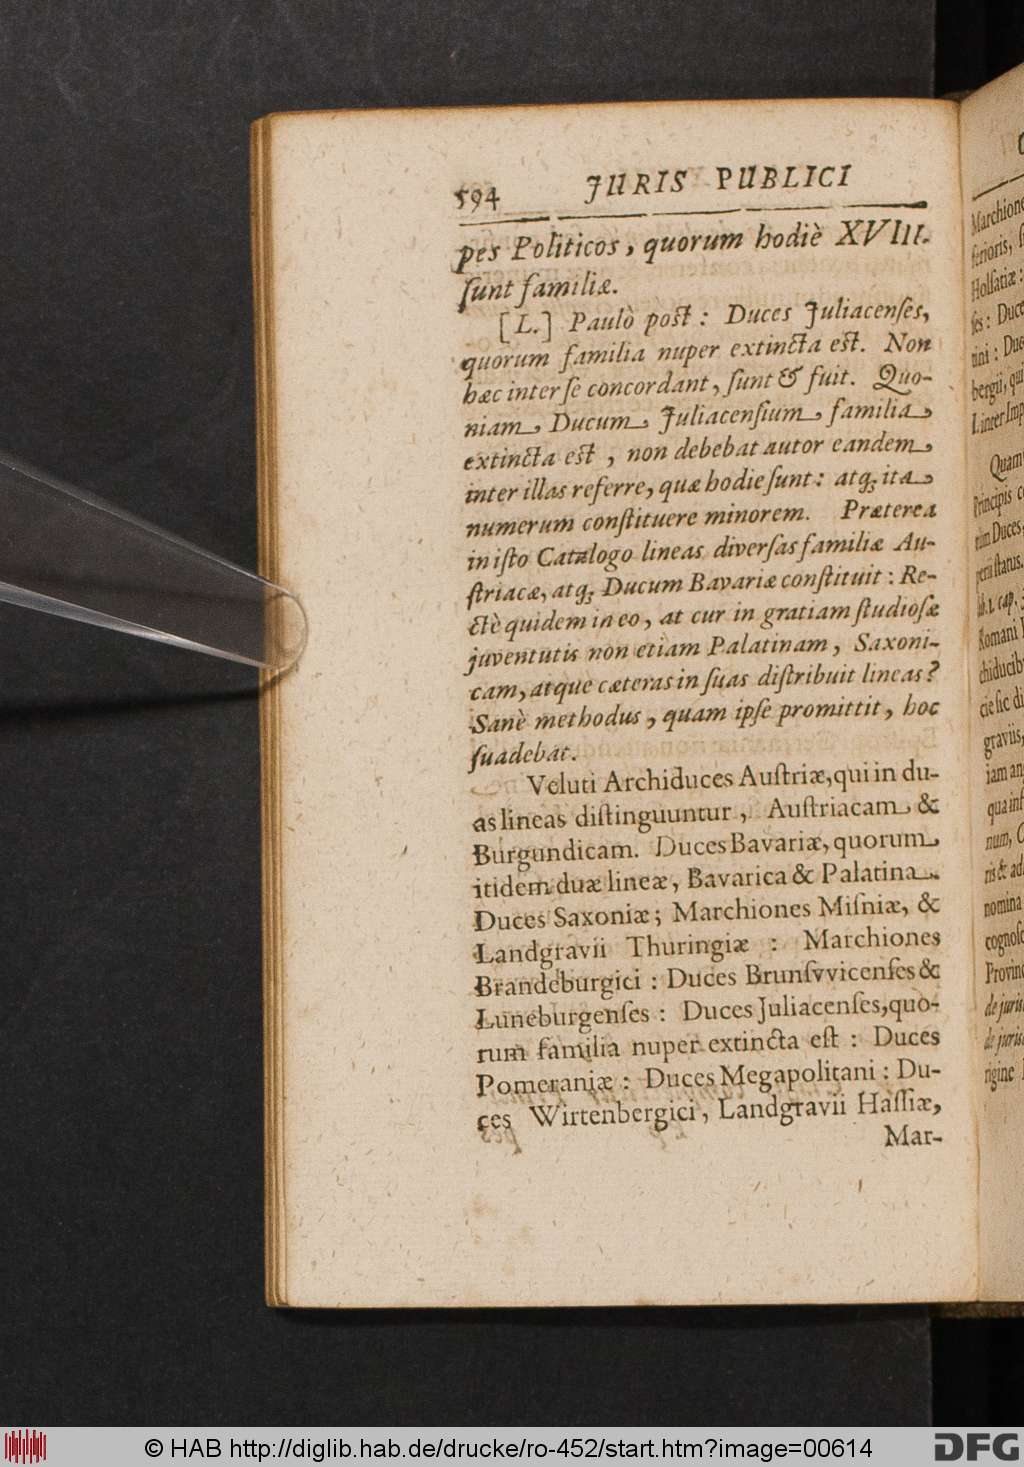 594 JURIS PUBLICI
pes Politicos, quorum hodiè XVIII.
ſunt familiæ.
[L.] Paulò post: Duces Juliacenſes,
quorum familia nuper extincta est. Non
hæc inter ſe concordant, ſunt & fuit. Quo-
niam, Ducum, Juliacenſium, familia,
extincta est, non debebat autor eandem,
inter illas referre, quæ hodie ſunt: atq; ita,
numerum conſtituere minorem. Præterea
in iſto Catalogo lineas diverſas familiæ Au-
ſtriacæ, atq; Ducum Bavariæ conſtituit: Re-
ctè quidem in eo, at cur in gratiam ſtudioſæ
juventutis non etiam Palatinam, Saxoni-
cam, atque cæteras in ſuas diſtribuit lineas?
Sanè methodus, quam ipſe promittit, hoc
ſuadebat.
Veluti Archiduces Auſtriæ, qui in du-
as lineas diſtinguuntur, Auſtriacam &
Burgundicam. Duces Bavariæ, quorum
itidem duæ lineæ, Bavarica & Palatina.
Duces Saxoniæ; Marchiones Miſniæ, &
Landgravii Thuringiæ : Marchiones
Brandeburgici : Duces Brunſvvicenſes &
Luneburgenſes : Duces Juliacenſes, quo-
rum familia nuper extincta eſt : Duces
Pomeraniæ : Duces Megapolitani : Du-
ces Wirtenbergici, Landgravii Haſſiæ,
Mar-
Marchione
ferioris,
Holſatiæ:
ſes: Duce
tini: Duc
bergii, qui
Linter Imp
Quam
Principis c
Duces,
perii ſtatus.
lib. 1. cap.
Romani
chiducib
cie ſic di
graviis,
iam an
qua inf
num, C
ris & ad
nomina
cognoſc
Provinc
de juris
de juris
rigine
© HAB http://diglib.hab.de/drucke/ro-452/start.htm?image=00614
DFG